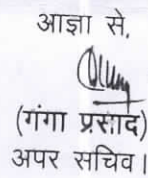 आज्ञा से,
(गंगा प्रसाद)
अपर सचिव।